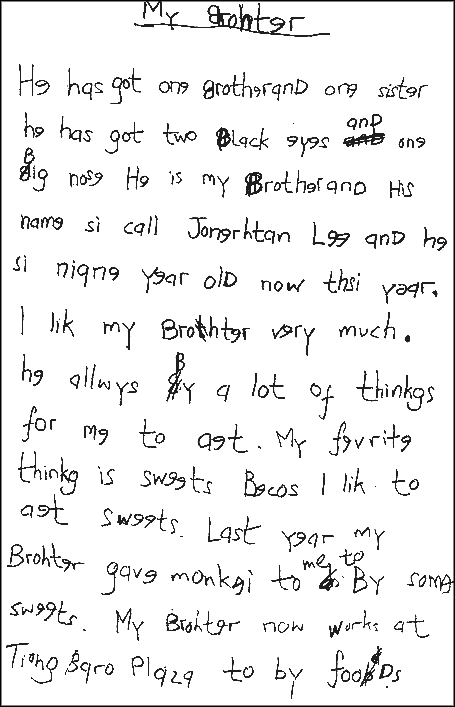 My Brohter
He has got one brotherand one sister
he has got two Black eyes and one
Big nose He is my Brotherand His
name si call Jonerhtan Lee and he
si niqne year old now thsi year.
I lik my Brothter very much.
he allwys By a lot of thinkgs
for me to aet. My fevrite
thinkg is sweets Becos I lik to
aet sweets. Last year my
Brohter gave monkei to me to By some
sweets. My Brohter now works at
Tiong Baro Plaza to by foods